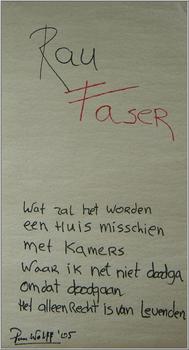 Rau
Faser
Wat zal het worden
een Huis misschien
met Kamers
Waar ik net niet doodga
omdat doodgaan
Het alleen Recht is van Levenden
Wolff '05